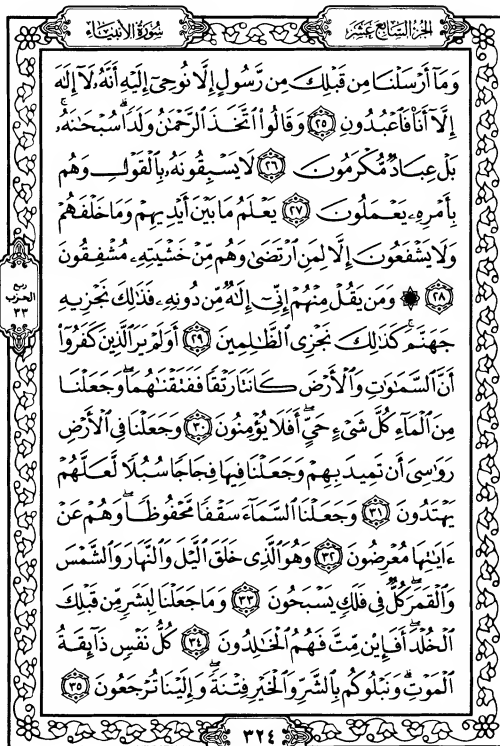 سُورَةُ الأَنبِيَاءِ
الجُزءُ السَّابِعَ عَشَرَ
وَمَآ أَرۡسَلۡنَا مِن قَبۡلِكَ مِن رَّسُولٍ إِلَّا نُوحِيٓ إِلَيۡهِ أَنَّهُۥ لَآ إِلَٰهَ
إِلَّآ أَنَا۠ فَٱعۡبُدُونِ ٢٥ وَقَالُواْ ٱتَّخَذَ ٱلرَّحۡمَٰنُ وَلَدٗاۗ سُبۡحَٰنَهُۥۚ
بَلۡ عِبَادٞ مُّكۡرَمُونَ ٢٦ لَا يَسۡبِقُونَهُۥ بِٱلۡقَوۡلِ وَهُم
بِأَمۡرِهِۦ يَعۡمَلُونَ ٢٧ يَعۡلَمُ مَا بَيۡنَ أَيۡدِيهِمۡ وَمَا خَلۡفَهُمۡ
وَلَا يَشۡفَعُونَ إِلَّا لِمَنِ ٱرۡتَضَىٰ وَهُم مِّنۡ خَشۡيَتِهِۦ مُشۡفِقُونَ
٢٨ ۞ وَمَن يَقُلۡ مِنۡهُمۡ إِنِّيٓ إِلَٰهٞ مِّن دُونِهِۦ فَذَٰلِكَ نَجۡزِيهِ
جَهَنَّمَۚ كَذَٰلِكَ نَجۡزِي ٱلظَّٰلِمِينَ ٢٩ أَوَلَمۡ يَرَ ٱلَّذِينَ كَفَرُوٓاْ
أَنَّ ٱلسَّمَٰوَٰتِ وَٱلۡأَرۡضَ كَانَتَا رَتۡقٗا فَفَتَقۡنَٰهُمَاۖ وَجَعَلۡنَا
مِنَ ٱلۡمَآءِ كُلَّ شَيۡءٍ حَيٍّۖ أَفَلَا يُؤۡمِنُونَ ٣٠ وَجَعَلۡنَا فِي ٱلۡأَرۡضِ
رَوَٰسِيَ أَن تَمِيدَ بِهِمۡ وَجَعَلۡنَا فِيهَا فِجَاجٗا سُبُلٗا لَّعَلَّهُمۡ
يَهۡتَدُونَ ٣١ وَجَعَلۡنَا ٱلسَّمَآءَ سَقۡفٗا مَّحۡفُوظٗاۖ وَهُمۡ عَنۡ
ءَايَٰتِهَا مُعۡرِضُونَ ٣٢ وَهُوَ ٱلَّذِي خَلَقَ ٱلَّيۡلَ وَٱلنَّهَارَ وَٱلشَّمۡسَ
وَٱلۡقَمَرَۖ كُلّٞ فِي فَلَكٖ يَسۡبَحُونَ ٣٣ وَمَا جَعَلۡنَا لِبَشَرٖ مِّن قَبۡلِكَ
ٱلۡخُلۡدَۖ أَفَإِيْن مِّتَّ فَهُمُ ٱلۡخَٰلِدُونَ ٣٤ كُلُّ نَفۡسٖ ذَآئِقَةُ
ٱلۡمَوۡتِۗ وَنَبۡلُوكُم بِٱلشَّرِّ وَٱلۡخَيۡرِ فِتۡنَةٗۖ وَإِلَيۡنَا تُرۡجَعُونَ ٣٥
ربع
الحزب
٣٣
٣٢٤